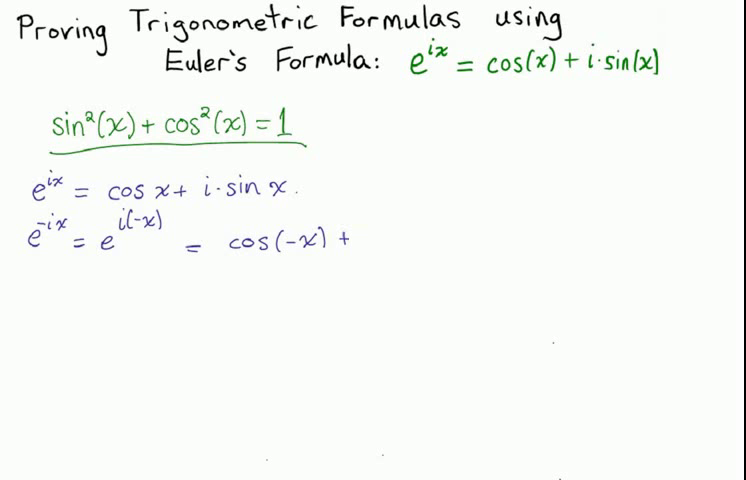 Proving Trigonometric Formulas using
Euler's Formula: e^{ix} = cos(x) + i·sin(x)
sin²(x) + cos²(x) = 1
e^{ix} = cos x + i·sin x.
e^{-ix} = e^{i(-x)} = cos(-x) +